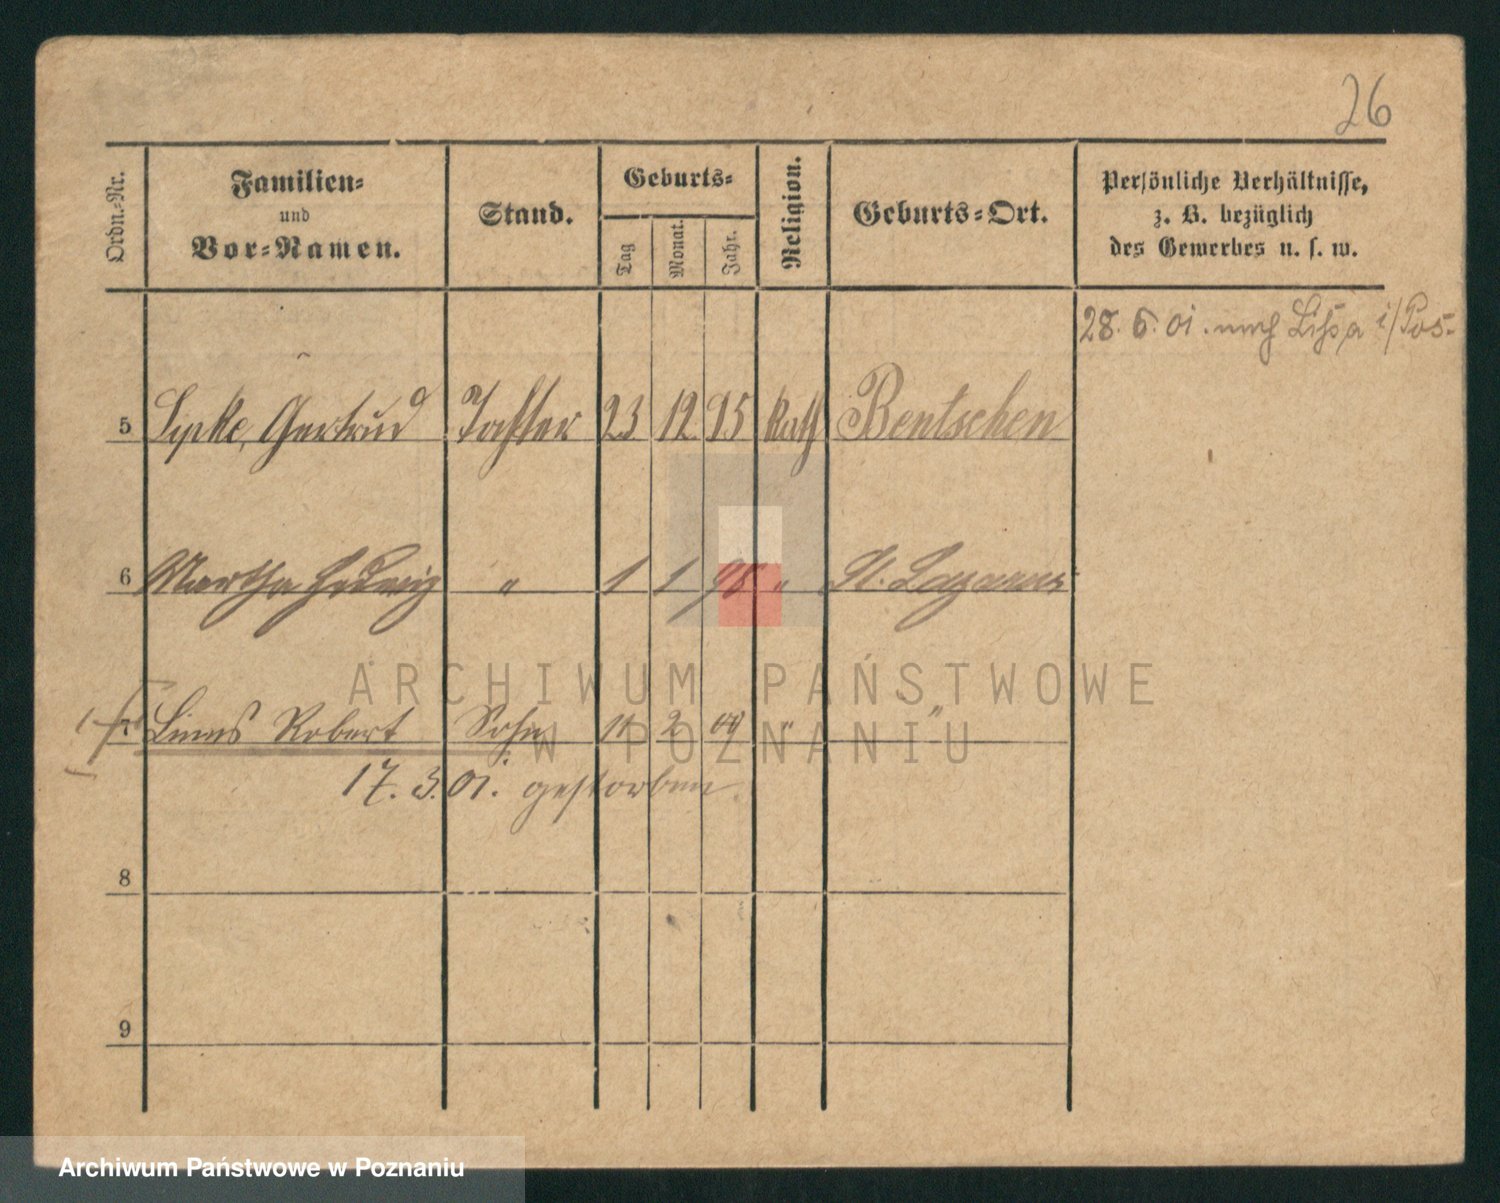 26
Ordn.-Nr.
Familien-
und
Vor-Namen.
Stand.
Geburts-
Tag
Monat.
Jahr.
Religion.
Geburts-Ort.
Persönliche Verhältnisse,
z. B. bezüglich
des Gewerbes u. s. w.
28. 6. 01. nach Lissa i/Pos.
5 Gertrud Tochter 23 12 95 Kath Bentschen
6 Martha Hedwig " 1 1 98 " St. Lazarus
7 Robert Sohn 11 2 00 " "
17. 3. 01. gestorben
8
9
ARCHIWUM PAŃSTWOWE
W POZNANIU
Archiwum Państwowe w Poznaniu